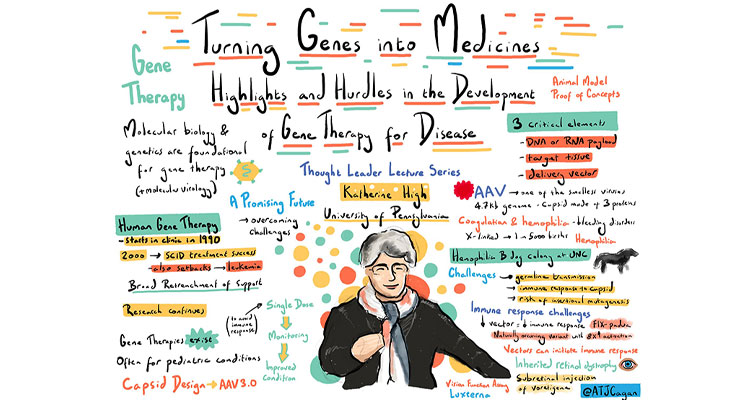 Turning Genes into Medicines
Highlights and Hurdles in the Development
of Gene Therapy for Disease
Gene
Therapy
Molecular biology &
genetics are foundational
for gene therapy
(+molecular virology)
$
Thought Leader Lecture Series
Katherine High
University of Pennsylvania
A Promising Future
→ overcoming
challenges
Human Gene Therapy
- starts in clinic in 1990
2000 → SCID treatment success
- also setbacks → leukemia
Broad Retrenchment of Support
Research continues
Gene Therapies exist
Often for pediatric conditions
Capsid Design → AAV3.0
(to avoid
immune
response)
Single Dose
Monitoring
Improved
Condition
Animal Model
Proof of Concepts
3 critical elements
- DNA or RNA payload
- target tissue
- delivery vector
AAV → one of the smallest viruses
4.7kb genome - Capsid made of 3 proteins
Coagulation & hemophilia - bleeding disorders
X-linked → 1 in 5000 births Hemophilia
Hemophilia B dog colony at UNC
Challenges → germline transmission
→ immune response to capsid
→ risk of insertional mutagenesis
Immune response challenges
↓ vector : ↓ immune response FIX-padua
Naturally occurring variant with 8x↑ activation
Vectors can initiate immune response
Inherited retinal dystrophy
Subretinal injection
of voretigene
Vision Function Assay
Luxterna
@ATJCagan